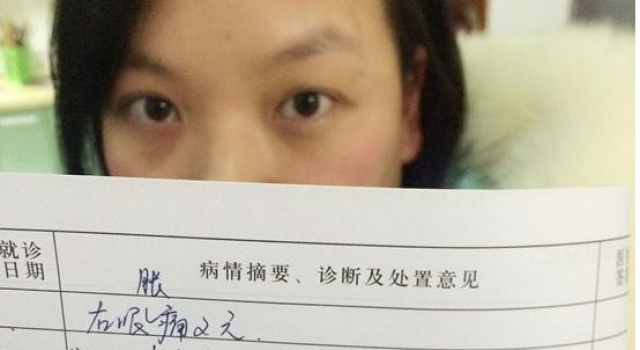 就诊
日期
病情摘要、诊断及处置意见
胀
右眼痛2天.